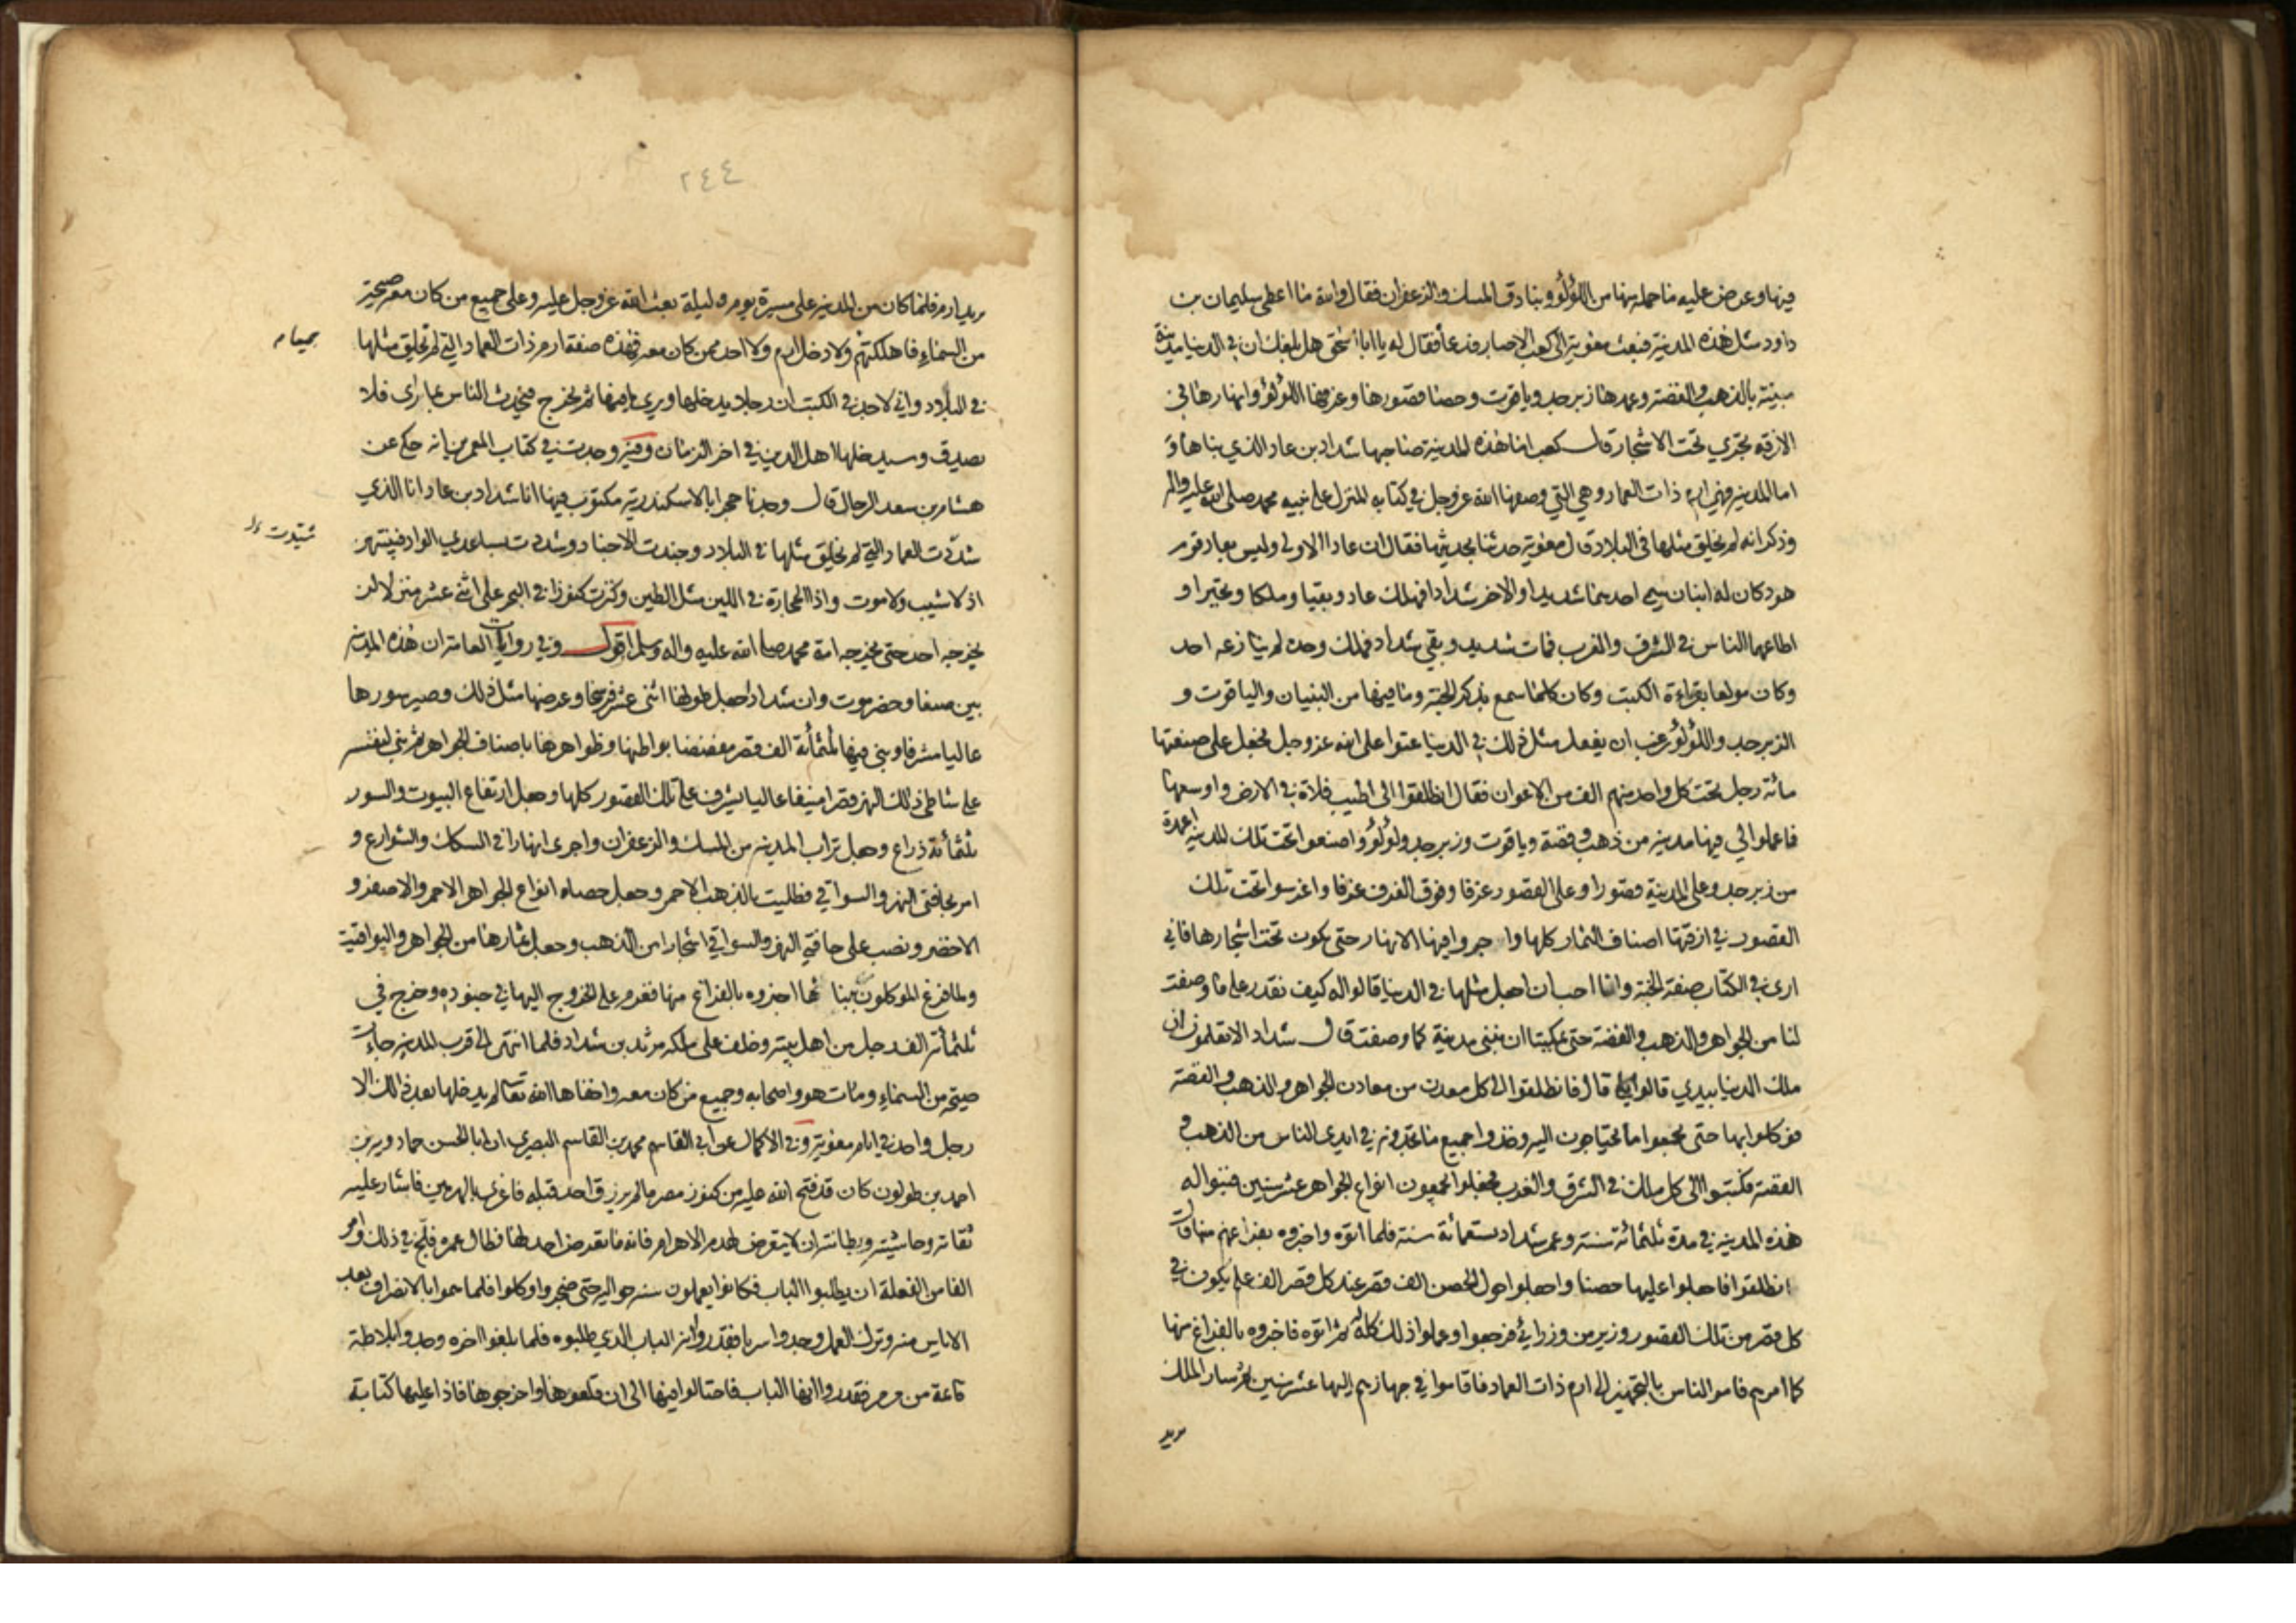 فيها وعرض عليه ما حمله منها من اللؤلؤ وبنادق المسك والزعفران فقال والله ما اعطى سليمان بن
داود مثل هذه المدينة فبعث معوية الى كعب الاحبار فدعا فقال له يا ابا اسحق هل بلغك ان في الدنيا مدينة
مبنية بالذهب والفضة وعمدها زبرجد وياقوت وحصا قصورها وغرفها اللؤلؤ وانهارها في
الازقة تجري تحت الاشجار قال كعب اما هذه المدينة صاحبها شداد بن عاد الذي بناها و
اما المدينة فهي ارم ذات العماد وهي التي وصفها الله عز وجل في كتابه المنزل على نبيه محمد صلى الله عليه واله
وذكر انه لم يخلق مثلها في البلاد قال معوية حدثنا بحديثها فقال ان عادا الاولى وليس بعاد قوم
هود كان له ابنان سمي احدهما شديدا والاخر شدادا فهلك عاد وبقيا وملكا وتجبرا و
اطاعهما الناس في الشرق والغرب فمات شديد وبقي شداد فملك وحده لم ينازعه احد
وكان مولعا بقراءة الكتب وكان كلما سمع بذكر الجنة وما فيها من البنيان والياقوت و
الزبرجد واللؤلؤ رغب ان يفعل مثل ذلك في الدنيا عتوا على الله عز وجل فجعل على صنعتها
مائة رجل تحت كل واحد منهم الف من الاعوان فقال انطلقوا الى اطيب فلاة في الارض واوسعها
فاعملوا لي فيها مدينة من ذهب وفضة وياقوت وزبرجد ولؤلؤ واصنعوا تحت تلك المدينة اعمدة
من زبرجد وعلى المدينة قصورا وعلى القصور غرفا وفوق الغرف غرفا واغرسوا تحت تلك
القصور في ازقتها اصناف الثمار كلها واجروا فيها الانهار حتى يكون تحت اشجارها فاني
ارى في الكتاب صفة الجنة وانا احب ان اجعل مثلها في الدنيا قالوا له كيف نقدر على ما وصفت
لنا من الجواهر والذهب والفضة حتى يمكننا ان نبني مدينة كما وصفت قال شداد الا تعلمون ان
ملك الدنيا بيدي قالوا بلى قال فانطلقوا الى كل معدن من معادن الجواهر والذهب والفضة
فوكلوا بها حتى تجمعوا ما تحتاجون اليه وخذوا جميع ما تجدونه في ايدي الناس من الذهب و
الفضة فكتبوا الى كل ملك في الشرق والغرب فجعلوا يجمعون انواع الجواهر عشر سنين فبنوا له
هذه المدينة في مدة ثلثمائة سنة وعمر شداد تسعمائة سنة فلما اتوه واخبروه بفراغهم منها قال
انطلقوا فاجعلوا عليها حصنا واجعلوا حول الحصن الف قصر عند كل قصر الف علم يكون في
كل قصر من تلك القصور وزير من وزرائي فرجعوا وعملوا ذلك كله له ثم اتوه فاخبروه بالفراغ منها
كما امرهم فامر الناس بالتجهيز الى ارم ذات العماد فاقاموا في جهازهم اليها عشر سنين ثم سار الملك
يريد
٢٤٤
يريد ارم فلما كان من المدينة على مسيرة يوم وليلة بعث الله عز وجل عليه وعلى جميع من كان معه صيحة
من السماء فاهلكتهم ولا دخل ارم ولا احد ممن كان معه فهذه صفة ارم ذات العماد التي لم يخلق مثلها
جميعا م
في البلاد واني لاجد في الكتب ان رجلا يدخلها ويرى ما فيها ثم يخرج فيحدث الناس بما راى فلا
يصدق وسيدخلها اهل الدين في اخر الزمان وفيه وجدت في كتاب المعمرين انه حكي عن
هشام بن سعد الرحال قال وجدنا حجرا بالاسكندرية مكتوب فيها انا شداد بن عاد انا الذي
شيدت
شددت العماد التي لم يخلق مثلها في البلاد وجندت الاجناد وشددت بساعدي الواد فبنيتهن
اذ لا شيب ولا موت واذ الحجارة في اللين مثل الطين وكنزت كنوزا في البحر على اثنى عشر منزلا لن
يخرجه احد حتى يخرجه امة محمد صلى الله عليه واله وسلم اقول وفي روايات العامة ان هذه المدينة
بين صنعا وحضرموت وان شداد جعل طولها اثنى عشر فرسخا وعرضها مثل ذلك وصير سورها
عاليا مشرفا وبنى فيها ثلثمأئة الف قصر مفضضا بواطنها وظواهرها باصناف الجواهر ثم بنى لنفسه
على شاطئ ذلك النهر قصرا منيفا عاليا يشرف على تلك القصور كلها وجعل ارتفاع البيوت والسور
ثلثمأئة ذراع وجعل تراب المدينة من المسك والزعفران واجرى انهارا في السكك والشوارع و
امر بحافتى النهر والسواقي فطليت بالذهب الاحمر وجعل حصاه انواع الجواهر الاحمر والاصفر و
الاخضر ونصب على حافتي النهر والسواقي اشجارا من الذهب وجعل ثمارها من الجواهر واليواقيت
ولما فرغ الموكلون ببنائها اخبروه بالفراغ منها فعزم على الخروج اليها في جنوده وخرج في
ثلثمائة الف رجل من اهل بيته وخلف على ملكه مرثد بن شداد فلما انتهى الى قرب المدينة جاءت
صيحة من السماء ومات هو واصحابه وجميع من كان معه واخفاها الله تعالى لم يدخلها بعد ذلك الا
رجل واحد في ايام معوية وفي الاكمال عن ابي القاسم محمد بن القاسم البصري ان ابا الحسن حمادويه بن
احمد بن طولون كان قد فتح الله عليه من كنوز مصر ما لم يرزق احد قبله فاغري بالهرمين فاشار عليه
ثقاته وحاشيته وبطانته ان لا يتعرض لهدم الاهرام فانه ما تعرض احد لها فطال عمره فلج في ذلك وامر
الفا من الفعلة ان يطلبوا الباب فكانوا يعملون سنة حواليه حتى ضجروا وكلوا فلما هموا بالانصراف بعد
الاياس منه وترك العمل وجدوا سربا فقدروا انه الباب الذي طلبوه فلما بلغوا اخره وجدوا بلاطة
قائمة من مرمر فقدروا انها الباب فاحتالوا فيها الى ان قلعوها واخرجوها فاذا عليها كتابة